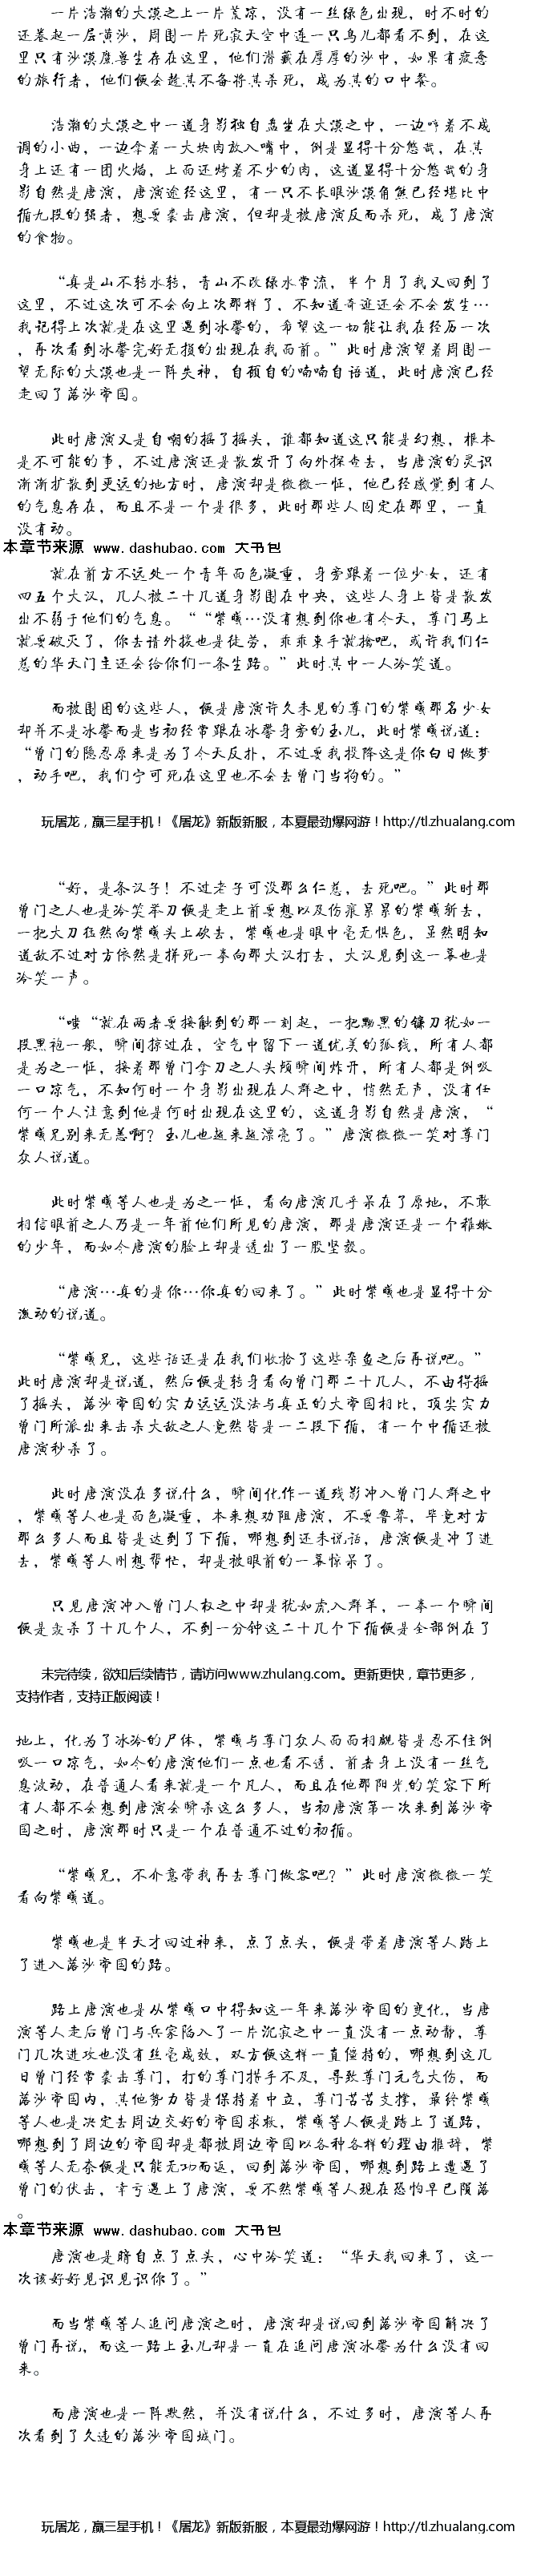 一片浩瀚的大漠之上一片荒凉，没有一丝绿色出现，时不时的
还卷起一层黄沙，周围一片死寂天空中连一只鸟儿都看不到，在这
里只有沙漠魔兽生存在这里，他们潜藏在厚厚的沙中，如果有疲惫
的旅行者，他们便会趁其不备将其杀死，成为其的口中餐。
浩瀚的大漠之中一道身影独自盘坐在大漠之中，一边哼着不成
调的小曲，一边拿着一大块肉放入嘴中，倒是显得十分悠哉，在其
身上还有一团火焰，上面还烤着不少的肉，这道显得十分悠哉的身
影自然是唐演，唐演途经这里，有一只不长眼沙漠角熊已经堪比中
循九段的强者，想要袭击唐演，但却是被唐演反而杀死，成了唐演
的食物。
“真是山不转水转，青山不改绿水常流，半个月了我又回到了
这里，不过这次可不会向上次那样了，不知道奇迹还会不会发生…
我记得上次就是在这里遇到冰馨的，希望这一切能让我在经历一次
，再次看到冰馨完好无损的出现在我面前。”此时唐演望着周围一
望无际的大漠也是一阵失神，自顾自的喃喃自语道，此时唐演已经
走回了落沙帝国。
此时唐演又是自嘲的摇了摇头，谁都知道这只能是幻想，根本
是不可能的事，不过唐演还是散发开了向外探查去，当唐演的灵识
渐渐扩散到更远的地方时，唐演却是微微一怔，他已经感觉到有人
的气息存在，而且不是一个是很多，此时那些人固定在那里，一直
没有动。
本章节来源 www.dashubao.com 大书包
就在前方不远处一个青年面色凝重，身旁跟着一位少女，还有
四五个大汉，几人被二十几道身影围在中央，这些人身上皆是散发
出不弱于他们的气息。““紫曦…没有想到你也有今天，尊门马上
就要破灭了，你去请外援也是徒劳，乖乖束手就擒吧，或许我们仁
慈的华天门主还会给你们一条生路。”此时其中一人冷笑道。
而被围困的这些人，便是唐演许久未见的尊门的紫曦那名少女
却并不是冰馨而是当初经常跟在冰馨身旁的玉儿，此时紫曦说道：
“曾门的隐忍原来是为了今天反扑，不过要我投降这是你白日做梦
，动手吧，我们宁可死在这里也不会去曾门当狗的。”
玩屠龙，赢三星手机！《屠龙》新版新服，本夏最劲爆网游！http://tl.zhualang.com
“好，是条汉子！不过老子可没那么仁慈，去死吧。”此时那
曾门之人也是冷笑举刀便是走上前要想以及伤痕累累的紫曦斩去，
一把大刀猛然向紫曦头上砍去，紫曦也是眼中毫无惧色，虽然明知
道敌不过对方依然是拼死一拳向那大汉打去，大汉见到这一幕也是
冷笑一声。
“嗤“就在两者要接触到的那一刻起，一把黝黑的镰刀犹如一
段黑袍一般，瞬间掠过在，空气中留下一道优美的弧线，所有人都
是为之一怔，接着那曾门拿刀之人头颅瞬间炸开，所有人都是倒吸
一口凉气，不知何时一个身影出现在人群之中，悄然无声，没有任
何一个人注意到他是何时出现在这里的，这道身影自然是唐演，“
紫曦兄别来无恙啊？玉儿也越来越漂亮了。”唐演微微一笑对尊门
众人说道。
此时紫曦等人也是为之一怔，看向唐演几乎呆在了原地，不敢
相信眼前之人乃是一年前他们所见的唐演，那是唐演还是一个稚嫩
的少年，而如今唐演的脸上却是透出了一股坚毅。
“唐演…真的是你…你真的回来了。”此时紫曦也是显得十分
激动的说道。
“紫曦兄，这些话还是在我们收拾了这些杂鱼之后再说吧。”
此时唐演却是说道，然后便是转身看向曾门那二十几人，不由得摇
了摇头，落沙帝国的实力远远没法与真正的大帝国相比，顶尖实力
曾门所派出来击杀大敌之人竟然皆是一二段下循，有一个中循还被
唐演秒杀了。
此时唐演没在多说什么，瞬间化作一道残影冲入曾门人群之中
，紫曦等人也是面色凝重，本来想劝阻唐演，不要鲁莽，毕竟对方
那么多人而且皆是达到了下循，哪想到还未说话，唐演便是冲了进
去，紫曦等人刚想帮忙，却是被眼前的一幕惊呆了。
只见唐演冲入曾门人权之中却是犹如虎入群羊，一拳一个瞬间
便是轰杀了十几个人，不到一分钟这二十几个下循便是全部倒在了
未完待续，欲知后续情节，请访问www.zhulang.com。更新更快，章节更多，
支持作者，支持正版阅读！
地上，化为了冰冷的尸体，紫曦与尊门众人面面相觑皆是忍不住倒
吸一口凉气，如今的唐演他们一点也看不透，前者身上没有一丝气
息波动，在普通人看来就是一个凡人，而且在他那阳光的笑容下所
有人都不会想到唐演会瞬杀这么多人，当初唐演第一次来到落沙帝
国之时，唐演那时只是一个在普通不过的初循。
“紫曦兄，不介意带我再去尊门做客吧？”此时唐演微微一笑
看向紫曦道。
紫曦也是半天才回过神来，点了点头，便是带着唐演等人踏上
了进入落沙帝国的路。
路上唐演也是从紫曦口中得知这一年来落沙帝国的变化，当唐
演等人走后曾门与兵家陷入了一片沉寂之中一直没有一点动静，尊
门几次进攻也没有丝毫成效，双方便这样一直僵持的，哪想到这几
日曾门经常袭击尊门，打的尊门措手不及，导致尊门元气大伤，而
落沙帝国内，其他势力皆是保持着中立，尊门苦苦支撑，最终紫曦
等人也是决定去周边交好的帝国求救，紫曦等人便是踏上了道路，
哪想到了周边的帝国却是都被周边帝国以各种各样的理由推辞，紫
曦等人无奈便是只能无功而返，回到落沙帝国，哪想到路上遭遇了
曾门的伏击，幸亏遇上了唐演，要不然紫曦等人现在恐怕早已陨落
。
本章节来源 www.dashubao.com 大书包
唐演也是暗自点了点头，心中冷笑道：“华天我回来了，这一
次该好好见识见识你了。”
而当紫曦等人追问唐演之时，唐演却是说回到落沙帝国解决了
曾门再说，而这一路上玉儿却是一直在追问唐演冰馨为什么没有回
来。
而唐演也是一阵默然，并没有说什么，不过多时，唐演等人再
次看到了久违的落沙帝国城门。
玩屠龙，赢三星手机！《屠龙》新版新服，本夏最劲爆网游！http://tl.zhualang.com